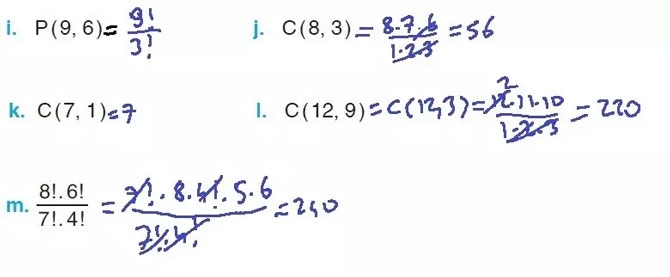 i. P(9, 6) = 9!/3!
j. C(8, 3) = 8.7.6/1.2.3 = 56
k. C(7, 1) = 7
l. C(12, 9) = C(12,3) = 2 12.11.10/1.2.3 = 220
m. 8!.6!/7!.4! = 7!.8.4!.5.6/7!.4! = 240